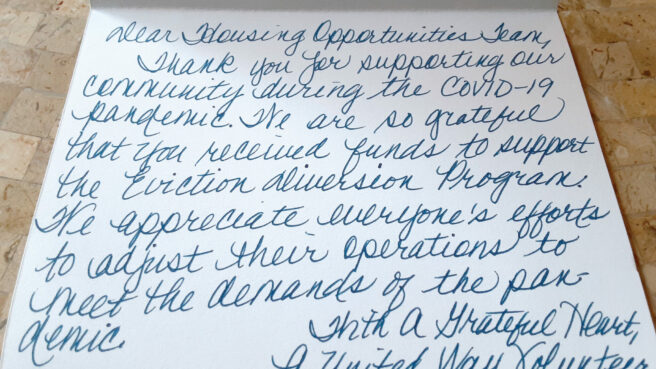 Dear Housing Opportunities Team,
Thank you for supporting our
community during the COVID-19
pandemic. We are so grateful
that you received funds to support
the Eviction diversion Program.
We appreciate everyone's efforts
to adjust their operations to
meet the demands of the pan-
demic.
With A Grateful Heart,
A United Way Volunteer